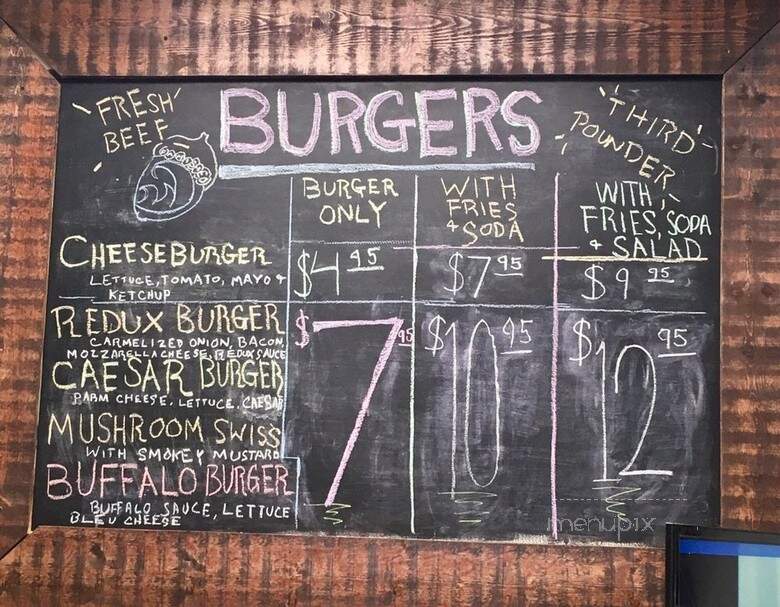 FRESH BURGERS THIRD
BEEF POUNDER
BURGER WITH WITH
ONLY FRIES FRIES, SODA
+ SODA + SALAD
CHEESEBURGER $4 95 $7 95 $9 95
LETTUCE, TOMATO, MAYO +
KETCHUP
REDUX BURGER $7 95 $10 95 $12 95
CARMELIZED ONION, BACON,
MOZZARELLA CHEESE, REDUX SAUCE
CAESAR BURGER
PARM CHEESE, LETTUCE, CAESAR
MUSHROOM SWISS
WITH SMOKEY MUSTARD
BUFFALO BURGER
BUFFALO SAUCE, LETTUCE
BLEU CHEESE
menupix